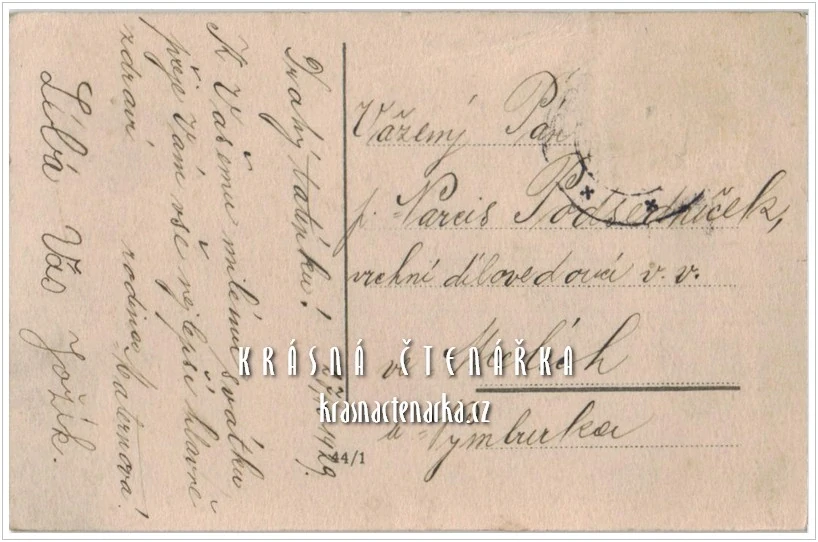 Drahý tatínku!
1929.
K Vašemu milému svátku
přeje Vám vše nejlepší hlavně
zdraví rodina Maternova!
Líbá Vás Jožík.
Vážený Pán
p. Narcis Podsedníček,
vrchní dílovedoucí v. v.
v
a Nymburka
44/1
KRÁSNÁ ČTENÁŘKA
krasnactenarka.cz